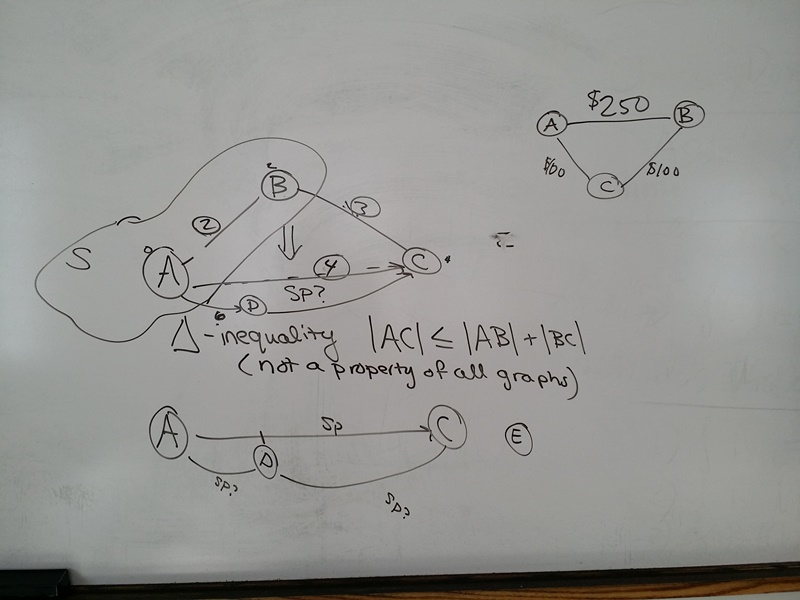 $250
A B
$100
C
B
2
3
S
A
4
C
SP?
D
6
Δ-inequality |AC| ≤ |AB| + |BC|
(not a property of all graphs)
A SP C E
D
SP? SP?